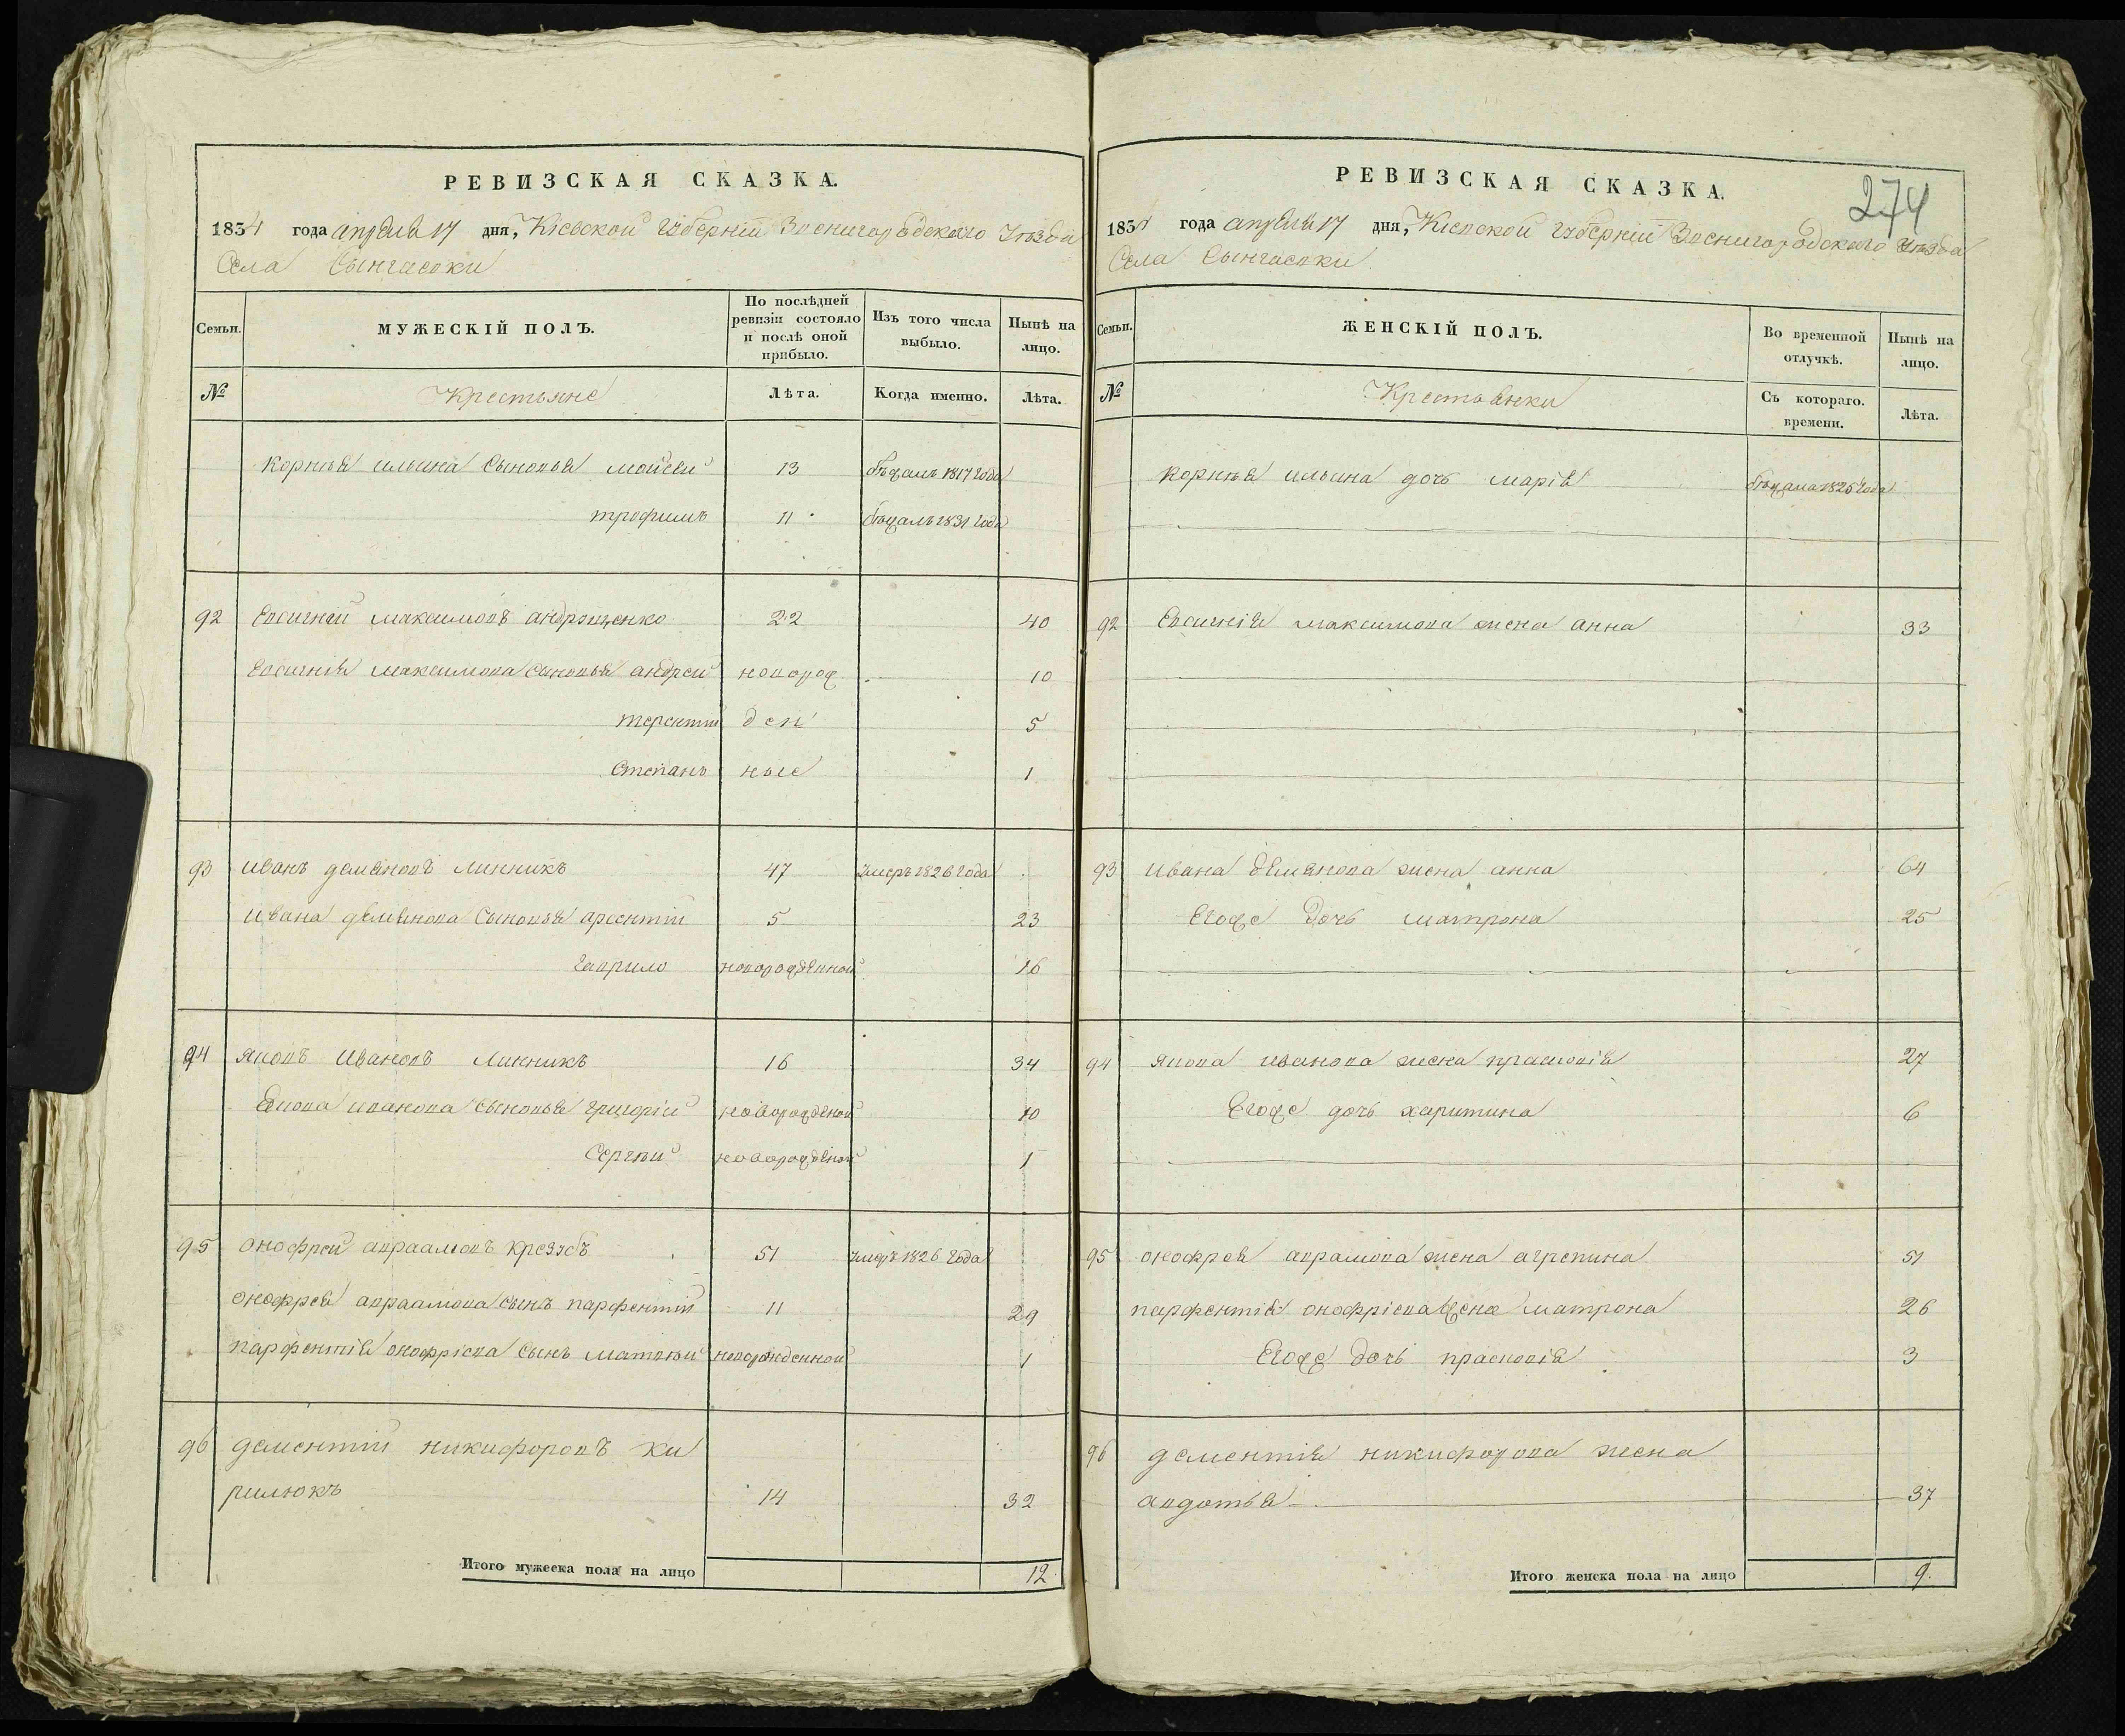 РЕВИЗСКАЯ СКАЗКА.
1834 года апреля 17 дня, Кіевской Губерніи Звенигородского Уезда
Села
Семьи. МУЖЕСКІЙ ПОЛЪ. По послѣдней ревизіи состояло и послѣ оной прибыло. Изъ того числа выбыло. Нынѣ на лицо.
№ Крестьяне Лѣта. Когда именно. Лѣта.
Корнѣя ильина Сыновья мойсей 13 бѣжалъ 1817 года
трофимъ 11 бѣжалъ 1831 года
92 Евсигней максимовъ андрощенко 22 40
Евсигнія максимова Сыновья андрей новорож 10
терентій ден 5
Степанъ ные 1
93 Иванъ демяновъ Линникъ 47 умеръ 1826 года
Ивана демянова Сыновья арсентій 5 23
гаврило новорожденной 16
94 яковъ Ивановъ Линникъ 16 34
Якова иванова сыновья григорій новорожденой 10
Сергѣй новорожденой 1
95 онофрей авраамовъ Крезубъ 51 умеръ 1826 года
онофрея авраамова сынъ парфентій 11 29
парфентія онофріева Сынъ матвѣй новорожденной 1
96 дементій никифоровъ ки
рилюкъ 14 32
Итого мужеска пола на лицо 12
274
РЕВИЗСКАЯ СКАЗКА.
1834 года апреля 17 дня, Кіевской Губерніи Звенигородского Уезда
Села
Семьи. ЖЕНСКІЙ ПОЛЪ. Во временной отлучкѣ. Нынѣ на лицо.
№ Крестьянки Съ котораго. времени. Лѣта.
Корнѣя ильина дочь марія бѣжала 1825 года
92 Евсигнія максимова жена анна 33
93 Ивана демянова жена анна 64
Егоже дочь матрона 25
94 Якова иванова жена прасковія 27
Егоже дочь харитина 6
95 онофрея аврамова жена агрепина 51
парфентія онофріева жена матрона 26
Егоже дочь прасковія 3
96 дементія никифорова жена
авдотья 37
Итого женска пола на лицо 9.